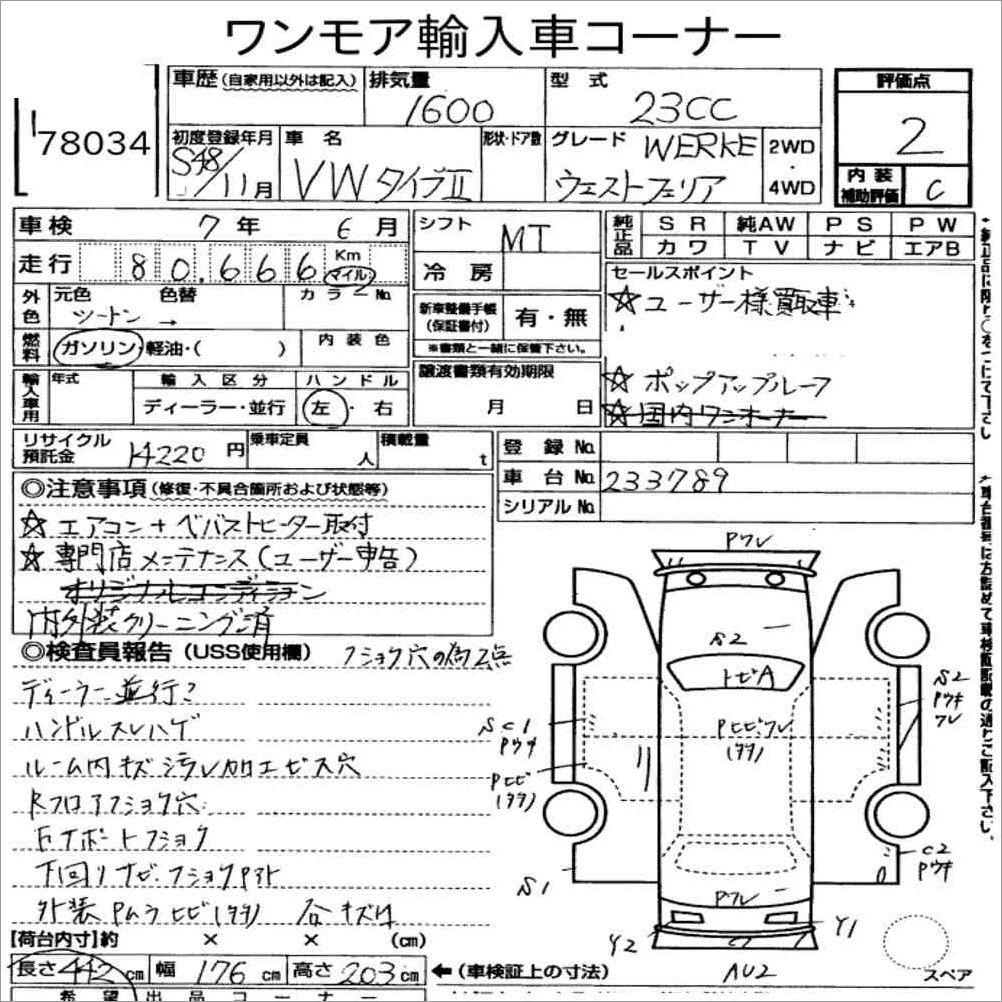 ワンモア輸入車コーナー
78034
車歴 (自家用以外は記入)
排気量 1600
型式 23CC
評価点 2
初度登録年月 S48/11月
車名 VWタイプII
形状・ドア数
グレード WERKE
ウェストフェリア
2WD・4WD
内装補助評価 C
車検 7年 6月
走行 80.666 Km マイル
外色 元色 ツートン →
色替
カラーNo
燃料 ガソリン・軽油・( )
内装色
輸入車用 年式
輸入区分 ディーラー・並行
ハンドル 左・右
シフト MT
冷房
新車整備手帳(保証書付) 有・無
※書類と一緒に保管下さい。
譲渡書類有効期限
月 日
純正品 SR 純AW PS PW
カワ TV ナビ エアB
セールスポイント
☆ユーザー様買取車
☆ポップアップルーフ
☆国内ワンオーナー
リサイクル預託金 14220円
乗車定員 人
積載量 t
登録No.
車台No. 233789
シリアルNo.
◎注意事項(修復・不具合箇所および状態等)
☆エアコン+ベバストヒーター取付
☆専門店メンテナンス(ユーザー申告)
オリジナルコンディション
内外装クリーニング済
◎検査員報告(USS使用欄) フショク穴の為2点
ディーラー並行?
ハンドルスレハゲ
ルーム内キズ汚レ加工ビス穴
Rフロアフショク穴
下回リサビ・フショクPアト
外装Pムラヒビ(タタ) 各キズ凹
Pワレ
S2
トビA
Pヒビワレ
(タタ)
SC1
Pウキ
Pヒビ
(タタ)
S1
S2
Pウキ
ワレ
C2
Pウキ
Pワレ
Y2
Y1
AU2
スペア
【荷台内寸】約 × × (cm)
長さ 442cm 幅 176cm 高さ 203cm
←(車検証上の寸法)
希望出品コーナー